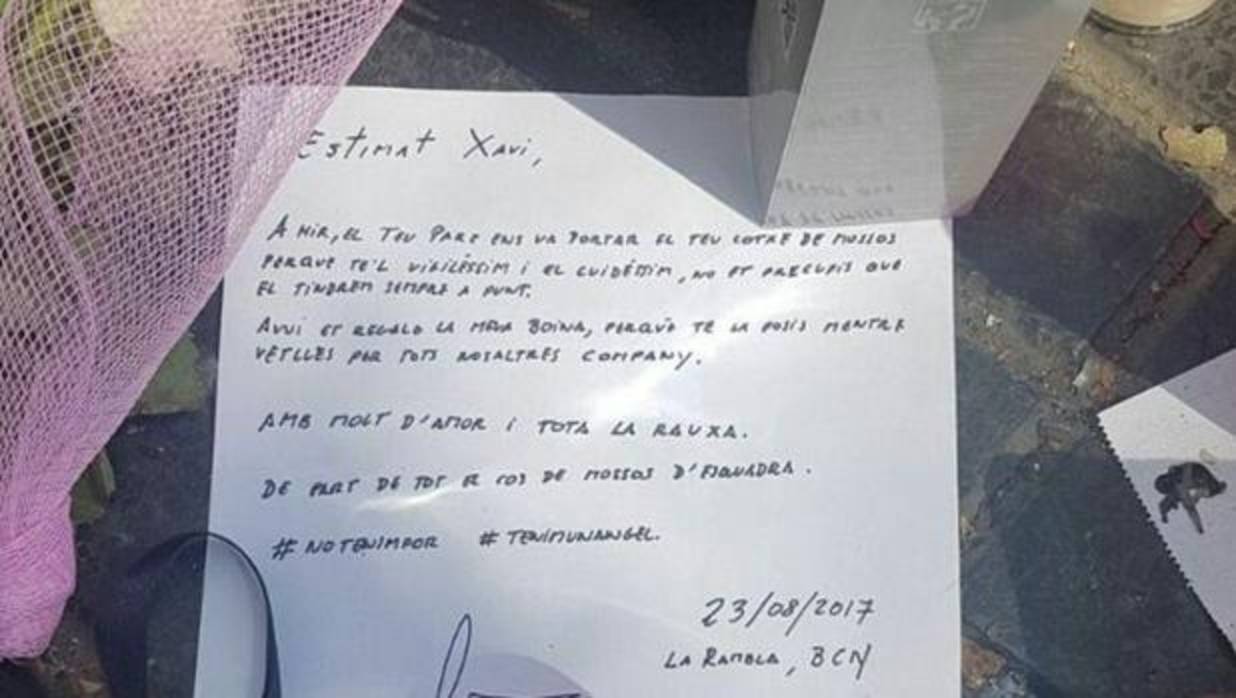 Estimat Xavi,
AHIR, EL TEU PARE ENS VA PORTAR EL TEU COTXE DE MOSSOS
PERQUÈ TE'L VIGILÉSSIM I EL CUIDÉSSIM, NO ET PREOCUPIS QUE
EL TINDREM SEMPRE A PUNT.
AVUI ET REGALO LA MEVA BOINA, PERQUÈ TE LA POSIS MENTRE
VETLLES PER TOTS NOSALTRES COMPANY.
AMB MOLT D'AMOR I TOTA LA RAUXA.
DE PART DE TOT EL COS DE MOSSOS D'ESQUADRA.
#NOTENIMPOR #TENIMUNANGEL.
23/08/2017
LA RAMBLA, BCN